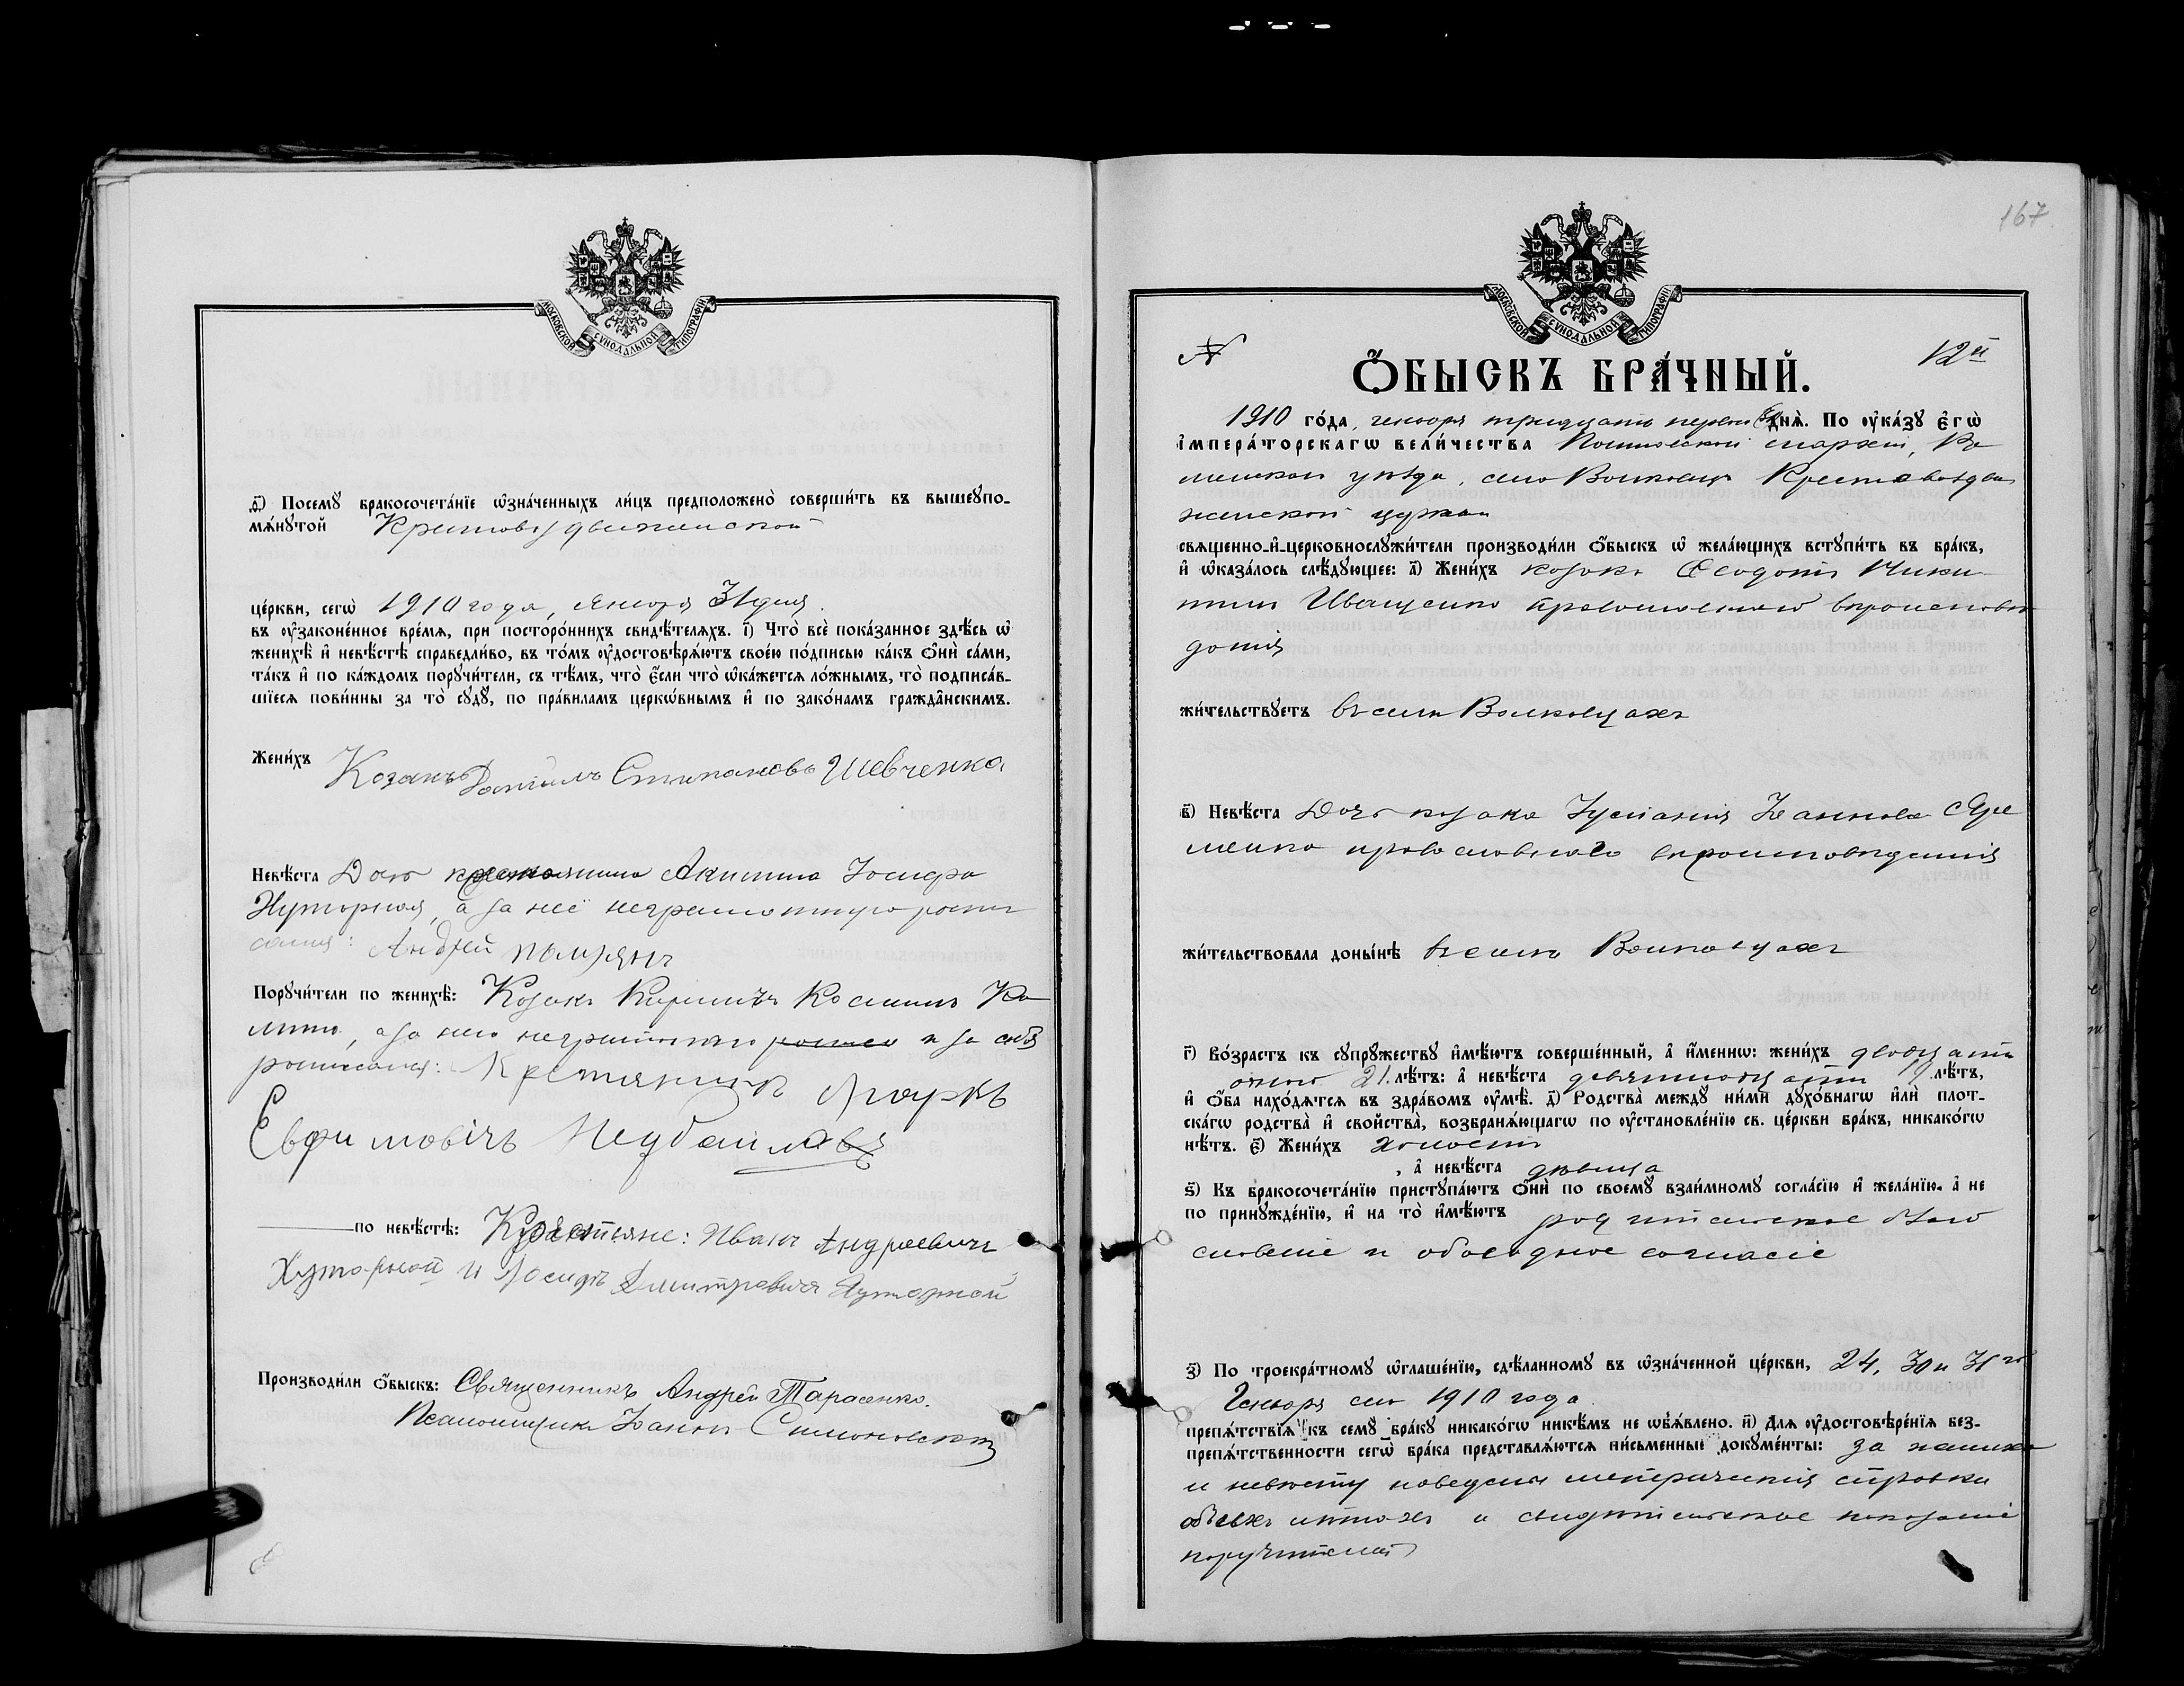 МОСКОВСКОЙ СѴНОДАЛЬНОЙ ТИПОГРАФІИ
д҃) Посемꙋ бракосочета́нїе ѡ҆зна́ченныхъ ли́цъ предположено̀ соверши́ть въ вышеꙋпо-
мѧ́нꙋтой Крестовоздвиженской
це́ркви, сегѡ̀ 1910 года, Января 31 дня.
въ ᲂу҆законе́нное вре́мѧ, при посторо́ннихъ свидѣ́телѧхъ. Что̀ всѐ пока́занное здѣ́сь ѡ҆
женихѣ̀ и҆ невѣ́стѣ справедли́во, въ то́мъ ᲂу҆достовѣрѧ́ютъ свое́ю по́дписью ка́къ ѻ҆нѝ са́ми,
та́къ и҆ по ка́ждомъ порꙋчи́тели, съ тѣ́мъ, что̀ є҆́сли что̀ ѡ҆ка́жетсѧ ло́жнымъ, то̀ подписа́в-
шїесѧ пови́нны за то̀ сꙋдꙋ̀, по пра́виламъ церкѡ́внымъ и҆ по зако́намъ гражда̂нскимъ.
Жени́хъ Козакъ Данiилъ Стипановъ Шевченко
Невѣ́ста Дочь крестьянина Акилина Іосифова
Хуторная, а за неё неграмотную роспи
сался: Андрей
Порꙋчи́тели по женихѣ̀: Козакъ Кириллъ Косминъ Ка
, а за него неграмотного и за себя
росписался: Крестянинъ Маркъ
Евфимовичъ Недбайловъ
по невѣ́стѣ: Крестьяне: Иванъ Андреевичъ
Хуторной и Іосифъ Димитревичъ Хуторной
Производи́ли ѻ҆́быскъ: Священникъ Андрей Тарасенко.
Псаломщикъ Іоаннъ Симоновскій
167
МОСКОВСКОЙ СѴНОДАЛЬНОЙ ТИПОГРАФІИ
№ 12й
Ѻ҆́БЫСКЪ БРА́ЧНЫЙ.
1910 го́да, генваря тридцать первого дня̀. По ᲂу҆ка́зꙋ є҆гѡ̀
і҆мпера́торскагѡ вели́чества Полтавской епархіи, Ро
менского уѣзда, села Волковецъ Крестовоздви
женской церкви
свѧщенно-и҆-церковнослꙋжи́тели производи́ли ѻ҆́быскъ ѡ҆ жела́ющихъ встꙋпи́ть въ бра́къ,
и҆ ѡ҆каза́лось слѣ́дꙋющее: а҃) Жени́хъ козакъ Ѳеодотъ Ники
тинъ Иващенко православного вѣроисповѣ
данія
жи́тельствꙋетъ въ селѣ Волковцахъ
в҃) Невѣ́ста Дочь козака Іуліанія Іоаннова Яре
менко православного вѣроисповѣданія
жи́тельствовала доны́нѣ въ селѣ Волковцахъ
г҃) Во́зрастъ къ сꙋпрꙋ́жествꙋ и҆мѣ́ютъ соверше́нный, а҆ и҆́меннѡ: жени́хъ двадцати
одного 21. лѣ́тъ: а҆ невѣ́ста девятнадцати 19 лѣ́тъ,
и҆ ѻ҆́ба нахо́дѧтсѧ въ здра́вомъ ᲂу҆мѣ̀. д҃) Родства̀ междꙋ ни́ми дꙋхо́внагѡ и҆лѝ плот-
ска́гѡ родства̀ и҆ сво́йства, возбранѧ́ющагѡ по ᲂу҆становле́нїю св. це́ркви бра́къ, никако́гѡ
нѣ́тъ. є҃) Жени́хъ холостъ
, а҆ невѣ́ста дѣвица
ѕ҃) Къ бракосочета́нїю пристꙋпа́ютъ ѻ҆нѝ по своемꙋ̀ взаи́мномꙋ согла́сїю и҆ жела́нїю, а҆ не
по принꙋжде́нїю, и҆ на то̀ и҆мѣ́ютъ родительское благо
словеніе и обоюдное согласіе
з҃) По троекра́тномꙋ ѡ҆глаше́нїю, сдѣ́ланномꙋ въ ѡ҆зна́ченной це́ркви, 24, 30 и 31го
Генваря сего 1910 года
препѧ́тствїѧ къ семꙋ̀ бра́кꙋ никако́гѡ никѣ́мъ не ѡ҆б̾ѧ́влено. и҃) Для ᲂу҆достовѣре́нїѧ без-
препѧ́тственности сегѡ̀ бра́ка представлѧ́ютсѧ пи́сьменные докꙋме́нты: за жениха
и невѣсту поведены метрическія справки
объ ихъ лѣтахъ и свидѣтельское показаніе
поручителей